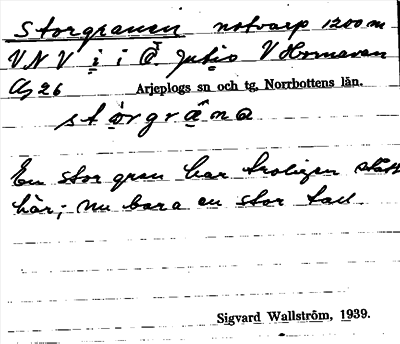 Storgranen notvarp 1200 m
V N V i i Ö. Jutis V Hornavan
Ag 26 Arjeplogs sn och tg, Norrbottens län.
stòrgrâna
En stor gran har troligen stått
här; nu bara en stor tall.
Sigvard Wallström, 1939.